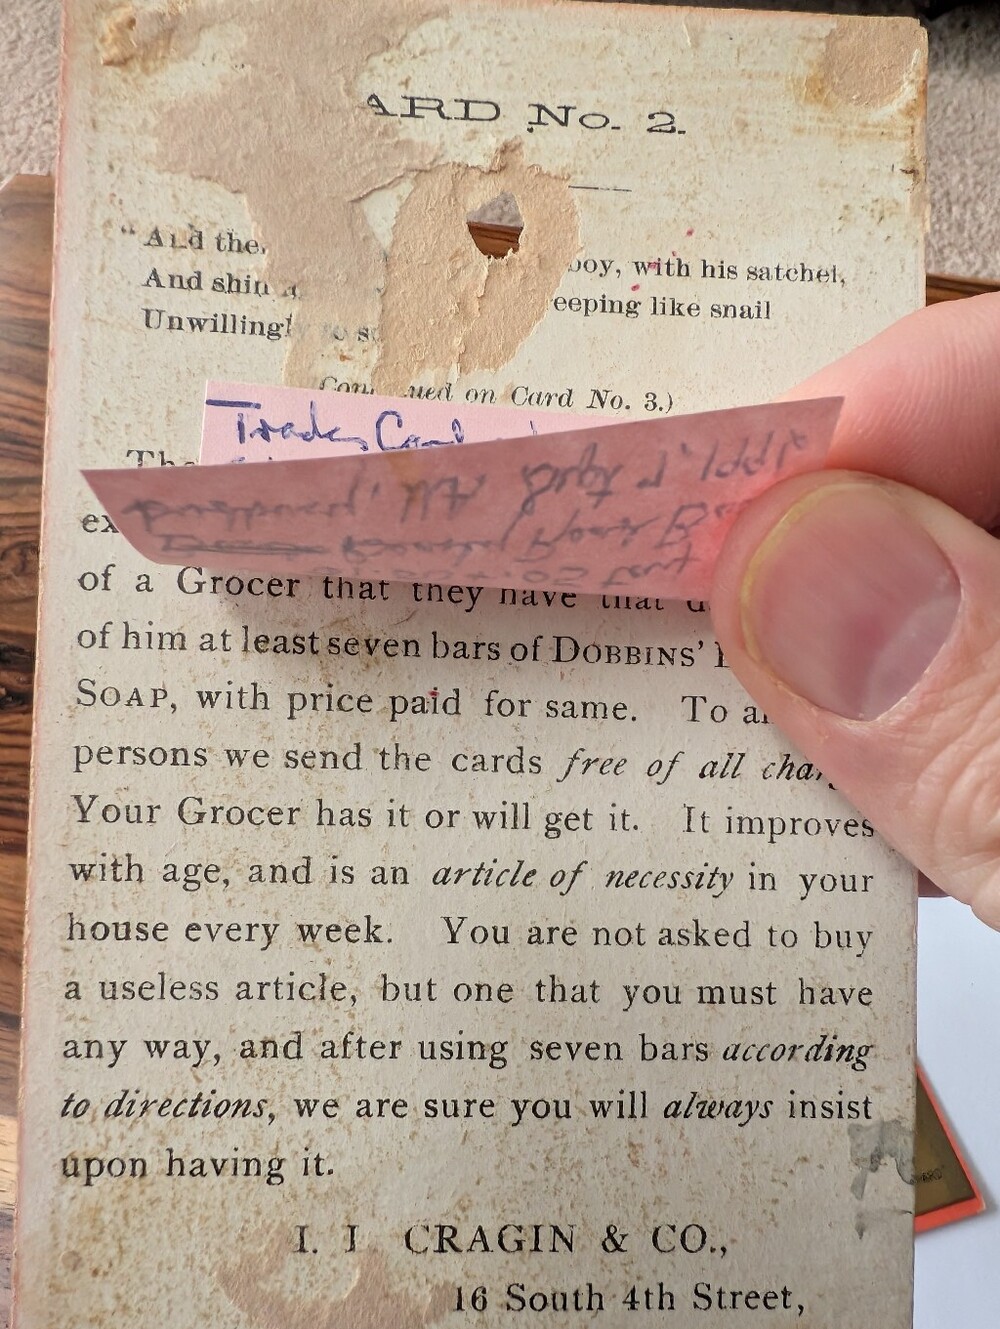 ARD No. 2.
"And the boy, with his satchel,
And shin eeping like snail
Unwillingl
ued on Card No. 3.)
Trade Card
The
ex
of a Grocer that they have that
of him at least seven bars of DOBBINS'
SOAP, with price paid for same. To a
persons we send the cards free of all char
Your Grocer has it or will get it. It improves
with age, and is an article of necessity in your
house every week. You are not asked to buy
a useless article, but one that you must have
any way, and after using seven bars according
to directions, we are sure you will always insist
upon having it.
I. I CRAGIN & CO.,
16 South 4th Street,